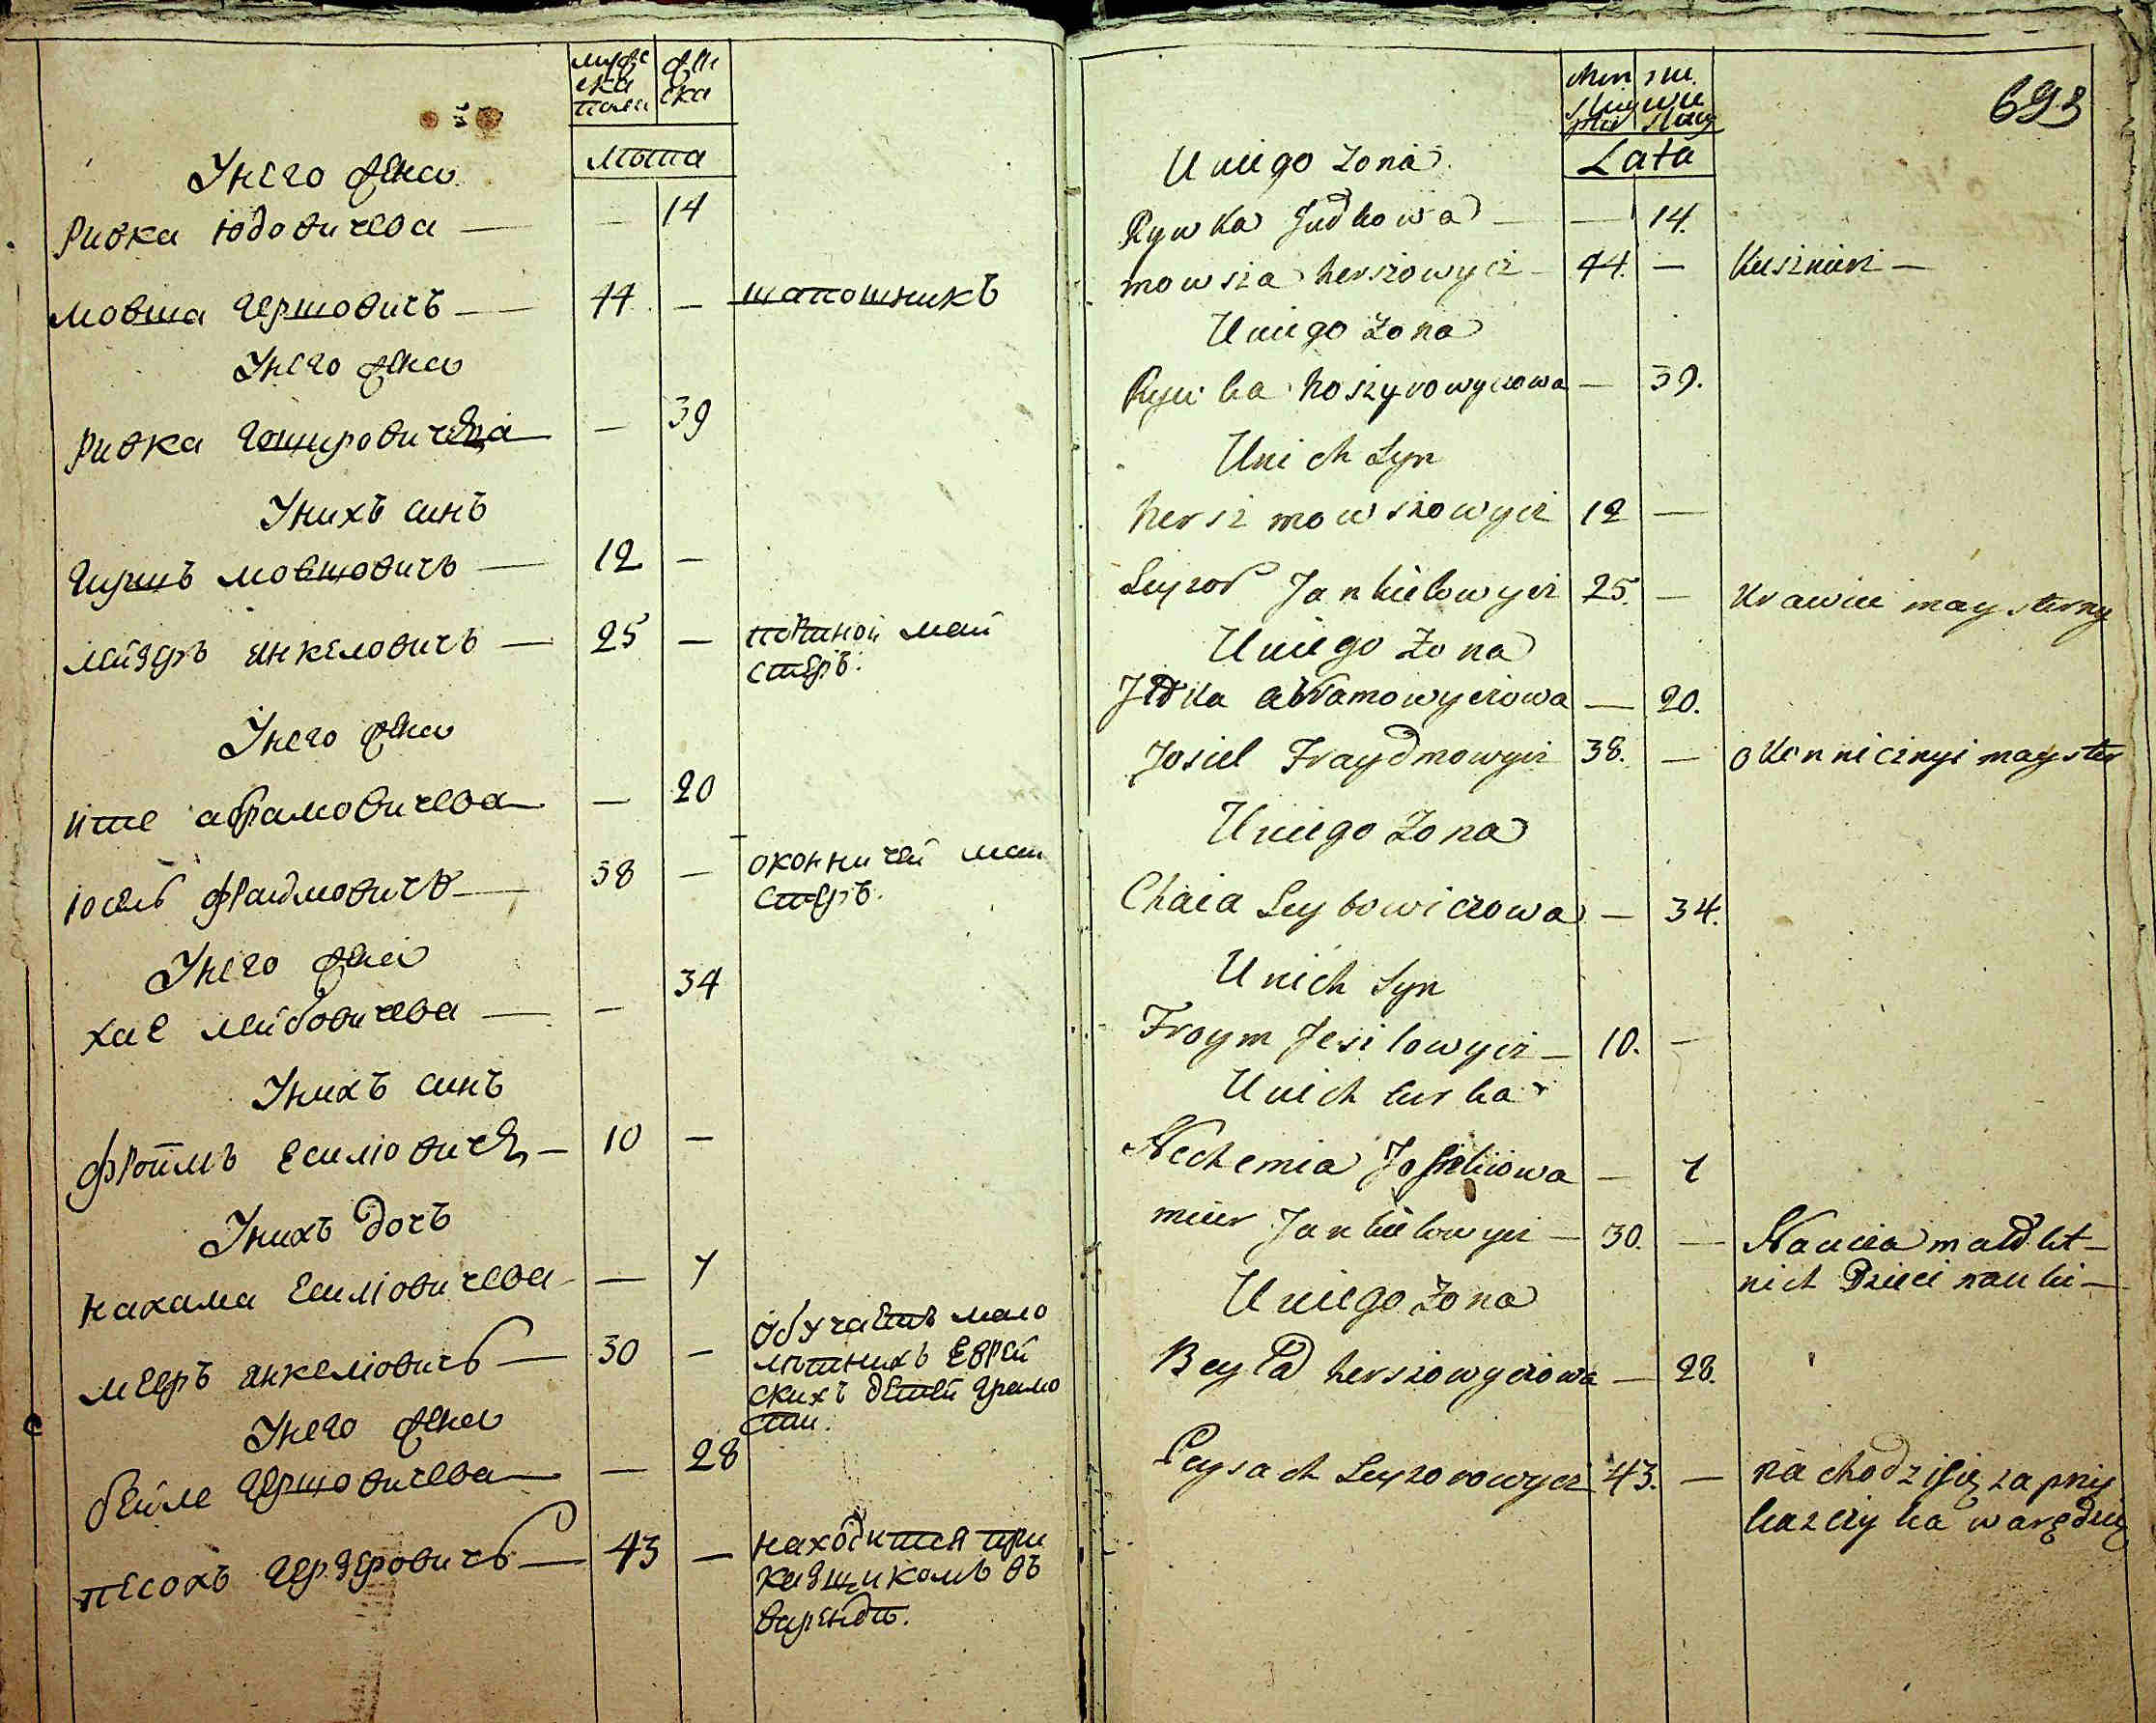 мужеска пола
женска
лѣта
Унего жена
Ривка Юдовичева — — 14
Мовша Гершовичъ — 44 — шапошникъ
Унего жена
Ривка Гошировичева — — 39
Унихъ синъ
Гиршъ Мовшовичъ — 12 —
Лейзеръ Янкеловичъ — 25 — май
стеръ.
Унего жена
Ите Абрамовичева — — 20
Юсель Фраимовичъ — 38 — оконничей маи
стеръ.
Унего жена
Хае Лейбовичева — — 34
Унихъ синъ
Фроимъ Есиліовичъ — 10 —
Унихъ дочъ
Нахама Есиліовичева — — 7
Мееръ Янкеліовичъ — 30 — обучаетъ мало
лѣтнихъ Еврей
скихъ детей грамо
ти.
Унего жена
Бейле Гершовичева — — 28
Песохъ — 43 — находится при
кащикомъ въ
варендѣ.
693
Lata
Uniego Zona
Rywka Judkowa — — 14.
mowsza herszowycz — 44. — Kusznierz —
Uniego Zona
Rywka hoszyrowyczowa — 39.
Unich Syn
hersz mowszowycz 12 —
Leyzor Jankielowycz 25. — Krawiec maysterny
Uniego Zona
Itka abramowyczowa — 20.
Josiel Fraydmowycz 38. — okennicznyi mayster
Uniego Zona
Chaia Leybowiczowa — 34.
Unich Syn
Froym Jesilowycz — 10. —
Unich curka
Nechemia — 7
meier Jankielowycz — 30. — Naucza małolet-
nich Dzieci nauki —
Uniego Zona
Beyla herszowyczowa — 28.
Peysach Leyzorowycz 43. — nachodzisię zapry
kazczyka warędzie